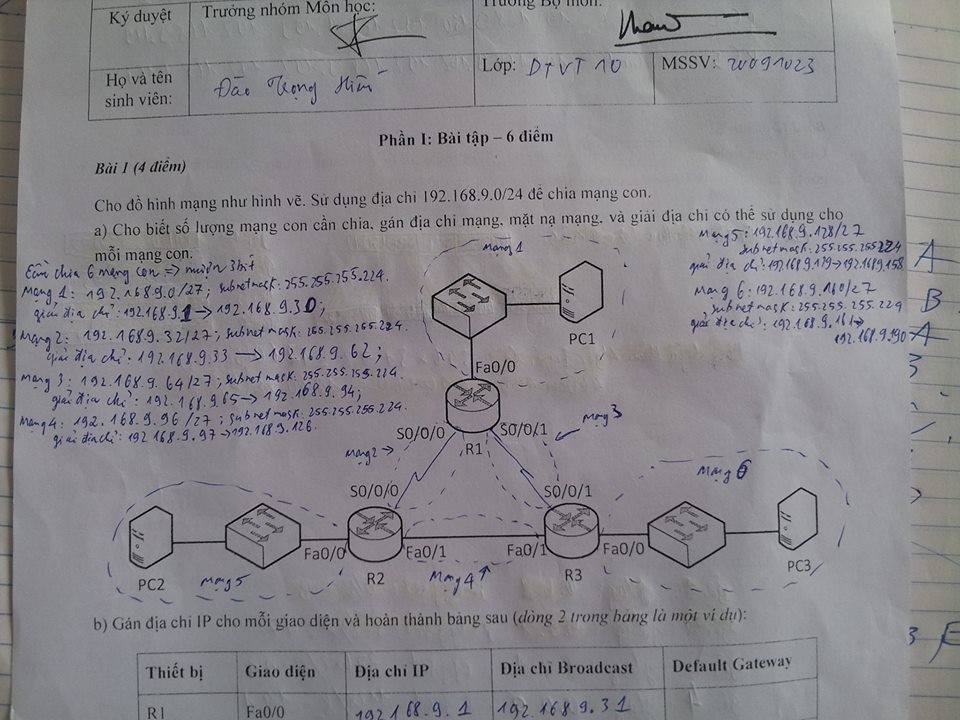 Ký duyệt
Trưởng nhóm Môn học:
Trưởng Bộ môn:
Họ và tên
sinh viên:
Đào Trọng Hiếu
Lớp: DTVT 10
MSSV: 20091023
Phần I: Bài tập – 6 điểm
Bài 1 (4 điểm)
Cho đồ hình mạng như hình vẽ. Sử dụng địa chỉ 192.168.9.0/24 để chia mạng con.
a) Cho biết số lượng mạng con cần chia, gán địa chỉ mạng, mặt nạ mạng, và giải địa chỉ có thể sử dụng cho
mỗi mạng con.
Cần chia 6 mạng con => mượn 3 bit
Mạng 1: 192.168.9.0/27; subnet mask: 255.255.255.224.
giải địa chỉ: 192.168.9.1 → 192.168.9.30;
Mạng 2: 192.168.9.32/27; subnet mask: 255.255.255.224.
giải địa chỉ: 192.168.9.33 → 192.168.9.62;
Mạng 3: 192.168.9.64/27; subnet mask: 255.255.255.224.
giải địa chỉ: 192.168.9.65 → 192.168.9.94;
Mạng 4: 192.168.9.96/27; subnet mask: 255.255.255.224.
giải địa chỉ: 192.168.9.97 → 192.168.9.126.
Mạng 5: 192.168.9.128/27
subnet mask: 255.255.255.224
giải địa chỉ: 192.168.9.129 → 192.168.9.158
Mạng 6: 192.168.9.160/27
subnet mask: 255.255.255.224
giải địa chỉ: 192.168.9.161 →
192.168.9.190
A
B
A
3
Mạng 1
PC1
Fa0/0
S0/0/0
S0/0/1
R1
Mạng 2 →
Mạng 3
S0/0/0
S0/0/1
Mạng 6
Fa0/0
Fa0/1
Fa0/1
Fa0/0
PC2
Mạng 5
R2
Mạng 4
R3
PC3
b) Gán địa chỉ IP cho mỗi giao diện và hoàn thành bảng sau (dòng 2 trong bảng là một ví dụ):
Thiết bị
Giao diện
Địa chỉ IP
Địa chỉ Broadcast
Default Gateway
R1
Fa0/0
192.168.9.1
192.168.9.31